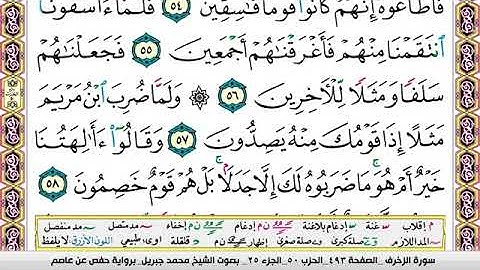 فَأَطَاعُوهُ إِنَّهُمْ كَانُوا۟ قَوْمًا فَـٰسِقِينَ ٥٤ فَلَمَّآ ءَاسَفُونَا
ٱنتَقَمْنَا مِنْهُمْ فَأَغْرَقْنَـٰهُمْ أَجْمَعِينَ ٥٥ فَجَعَلْنَـٰهُمْ
سَلَفًا وَمَثَلًا لِّلْـَٔاخِرِينَ ٥٦ ۞ وَلَمَّا ضُرِبَ ٱبْنُ مَرْيَمَ
مَثَلًا إِذَا قَوْمُكَ مِنْهُ يَصِدُّونَ ٥٧ وَقَالُوٓا۟ ءَأَـٰلِهَتُنَا
خَيْرٌ أَمْ هُوَ ۚ مَا ضَرَبُوهُ لَكَ إِلَّا جَدَلًۢا ۚ بَلْ هُمْ قَوْمٌ خَصِمُونَ ٥٨
م إقلاب غنة إدغام بلاغنة ن م إدغام ن م إخفاء مد متصل مد منفصل
مد اللازم صلة كبرى صلة صغرى إظهار ن م قلقلة اوى، طبيعي اللون الأزرق لا يلفظ
سورة الزخرف . الصفحة ٤٩٣ . الحزب ٥٠ . الجزء ٢٥ . بصوت الشيخ محمد جبريل . برواية حفص عن عاصم